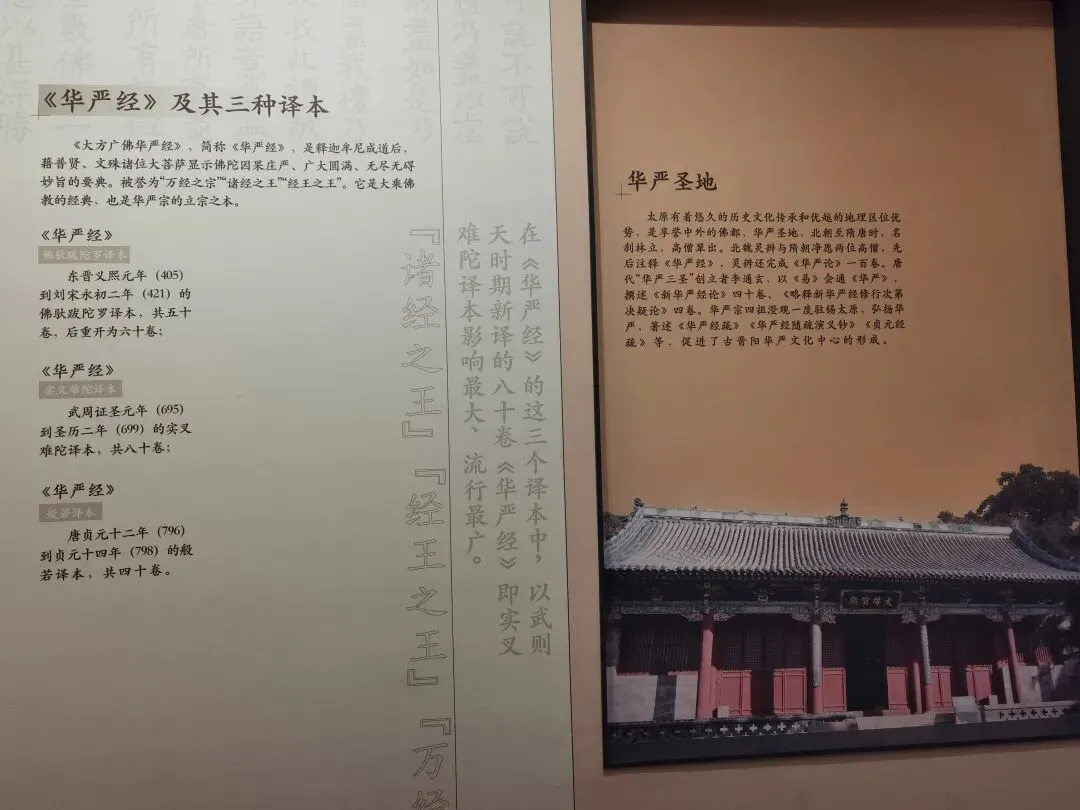 《华严经》及其三种译本
《大方广佛华严经》，简称《华严经》，是释迦牟尼成道后，
藉普贤、文殊诸位大菩萨显示佛陀因果庄严、广大圆满、无尽无碍
妙旨的要典。被誉为“万经之宗”“诸经之王”“经王之王”。它是大乘佛
教的经典，也是华严宗的立宗之本。
《华严经》
佛驮跋陀罗译本
东晋义熙元年（405）
到刘宋永初二年（421）的
佛驮跋陀罗译本，共五十
卷，后重开为六十卷；
《华严经》
实叉难陀译本
武周证圣元年（695）
到圣历二年（699）的实叉
难陀译本，共八十卷；
《华严经》
般若译本
唐贞元十二年（796）
到贞元十四年（798）的般
若译本，共四十卷。
在《华严经》的这三个译本中，以武则
天时期新译的八十卷《华严经》即实叉
难陀译本影响最大、流行最广。
『诸经之王』『经王之王』『万经
华严圣地
太原有着悠久的历史文化传承和优越的地理区位优
势，是享誉中外的佛都，华严圣地，北朝至隋唐时，名
刹林立，高僧辈出。北魏灵辨与隋朝净愿两位高僧，先
后注释《华严经》，灵辨还完成《华严论》一百卷。唐
代“华严三圣”创立者李通玄，以《易》会通《华严》，
撰述《新华严经论》四十卷、《略释新华严经修行次第
决疑论》四卷。华严宗四祖澄观一度驻锡太原，弘扬华
严，著述《华严经疏》《华严经随疏演义钞》《贞元经
疏》等，促进了古晋阳华严文化中心的形成。
殿寳雄大